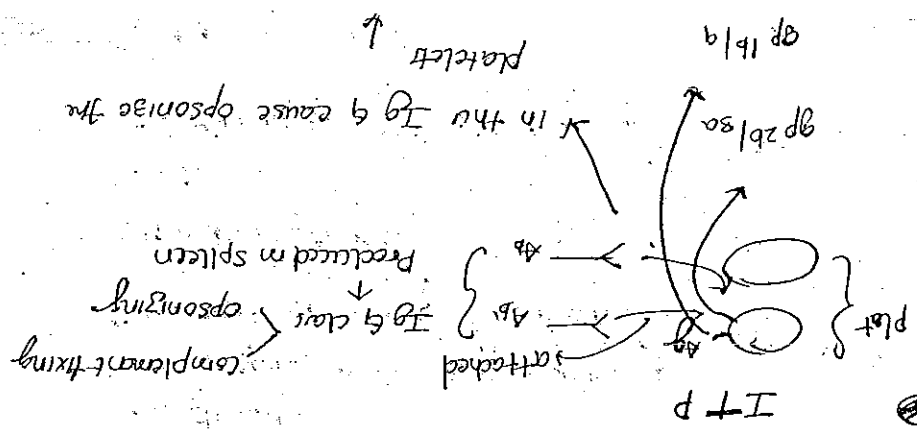 ITP
plat
Ag
attached
Ab
Ab
Ig G class
complemant fixing
opsonizing
↓
Produced in spleen
gp 2b/3a
gp 1b/9
in this Ig G cause opsonize the
platelets
↓